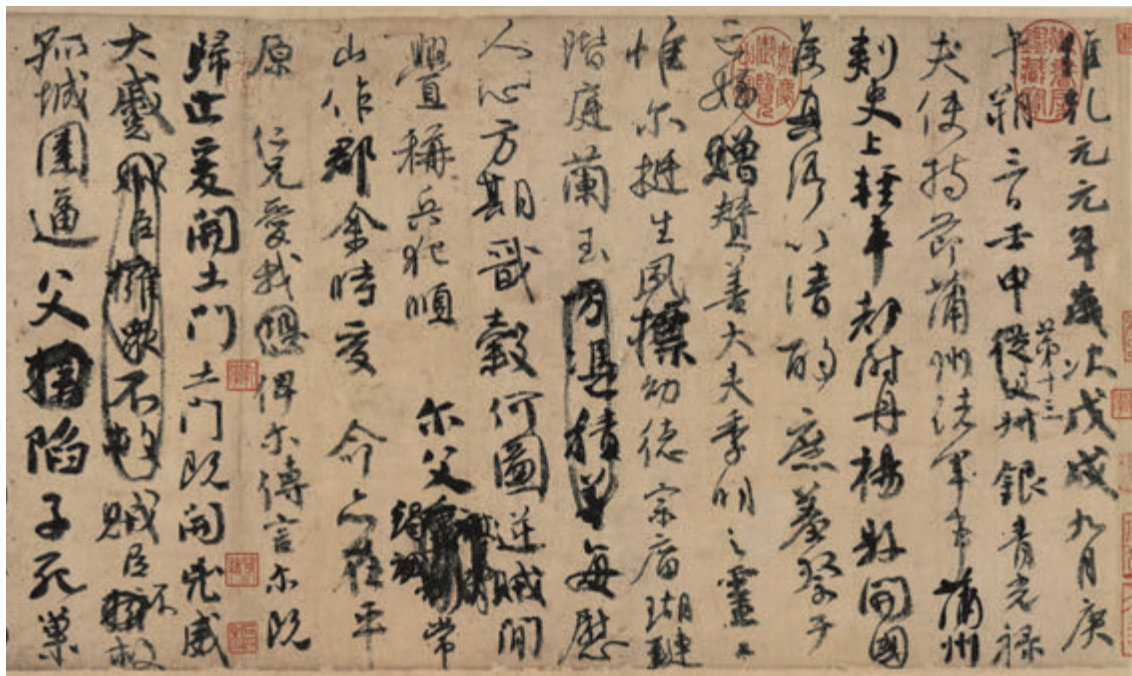 維乾元元年歲次戊戌九月庚
午朔三日壬申第十三從父銀青光祿
夫使持節蒲州諸軍事蒲州
刺史上輕車都尉丹楊縣開國
侯真卿以清酌庶羞祭于
亡姪贈贊善大夫季明之靈曰
惟尔挺生夙標幼德宗廟瑚璉
階庭蘭玉方憑積善每慰
人心方期戩穀何圖逆賊間
釁稱兵犯順 尔父竭誠常
山作郡余時受 命亦在平
原 仁兄愛我俾尔傳言尔既
歸止爰開土門土門既開凶威
大蹙賊臣擁眾不救賊臣不救
孤城圍逼父陷子死巢